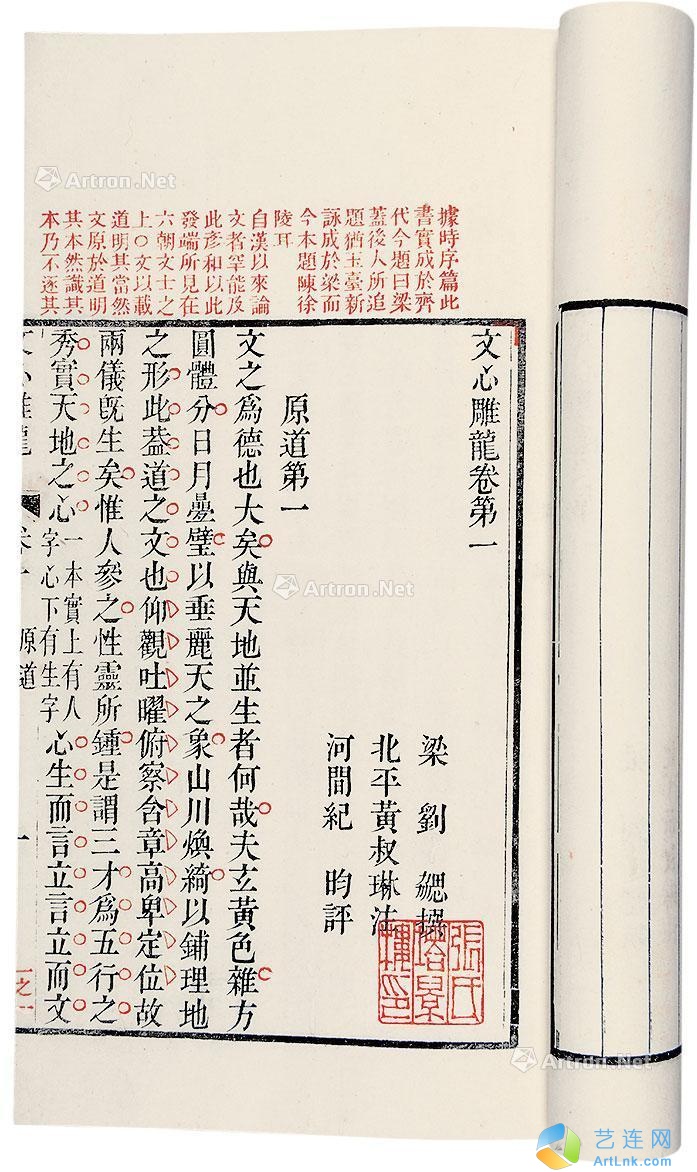 據時序篇此
書實成於齊
代今題曰梁
蓋後人所追
題猶玉臺新
詠成於梁而
今本題陳徐
陵耳
自漢以來論
文者罕能及
此彥和以此
發端所見在
六朝文士之
上○文以載
道明其當然
文原於道明
其本然識其
本乃不逐其
文心雕龍卷第一
梁劉勰撰
北平黃叔琳注
河間紀昀評
原道第一
文之爲德也大矣與天地並生者何哉夫玄黃色雜方
圓體分日月疊璧以垂麗天之象山川煥綺以鋪理地
之形此葢道之文也仰觀吐曜俯察含章高卑定位故
兩儀旣生矣惟人參之性靈所鍾是謂三才爲五行之
秀實天地之心一本實上有人字心下有生字心生而言立言立而文
文心雕龍 卷一 原道 一
一之一
Artron.Net
Artron.Net
Artron.Net
艺连网
ArtLnk.com